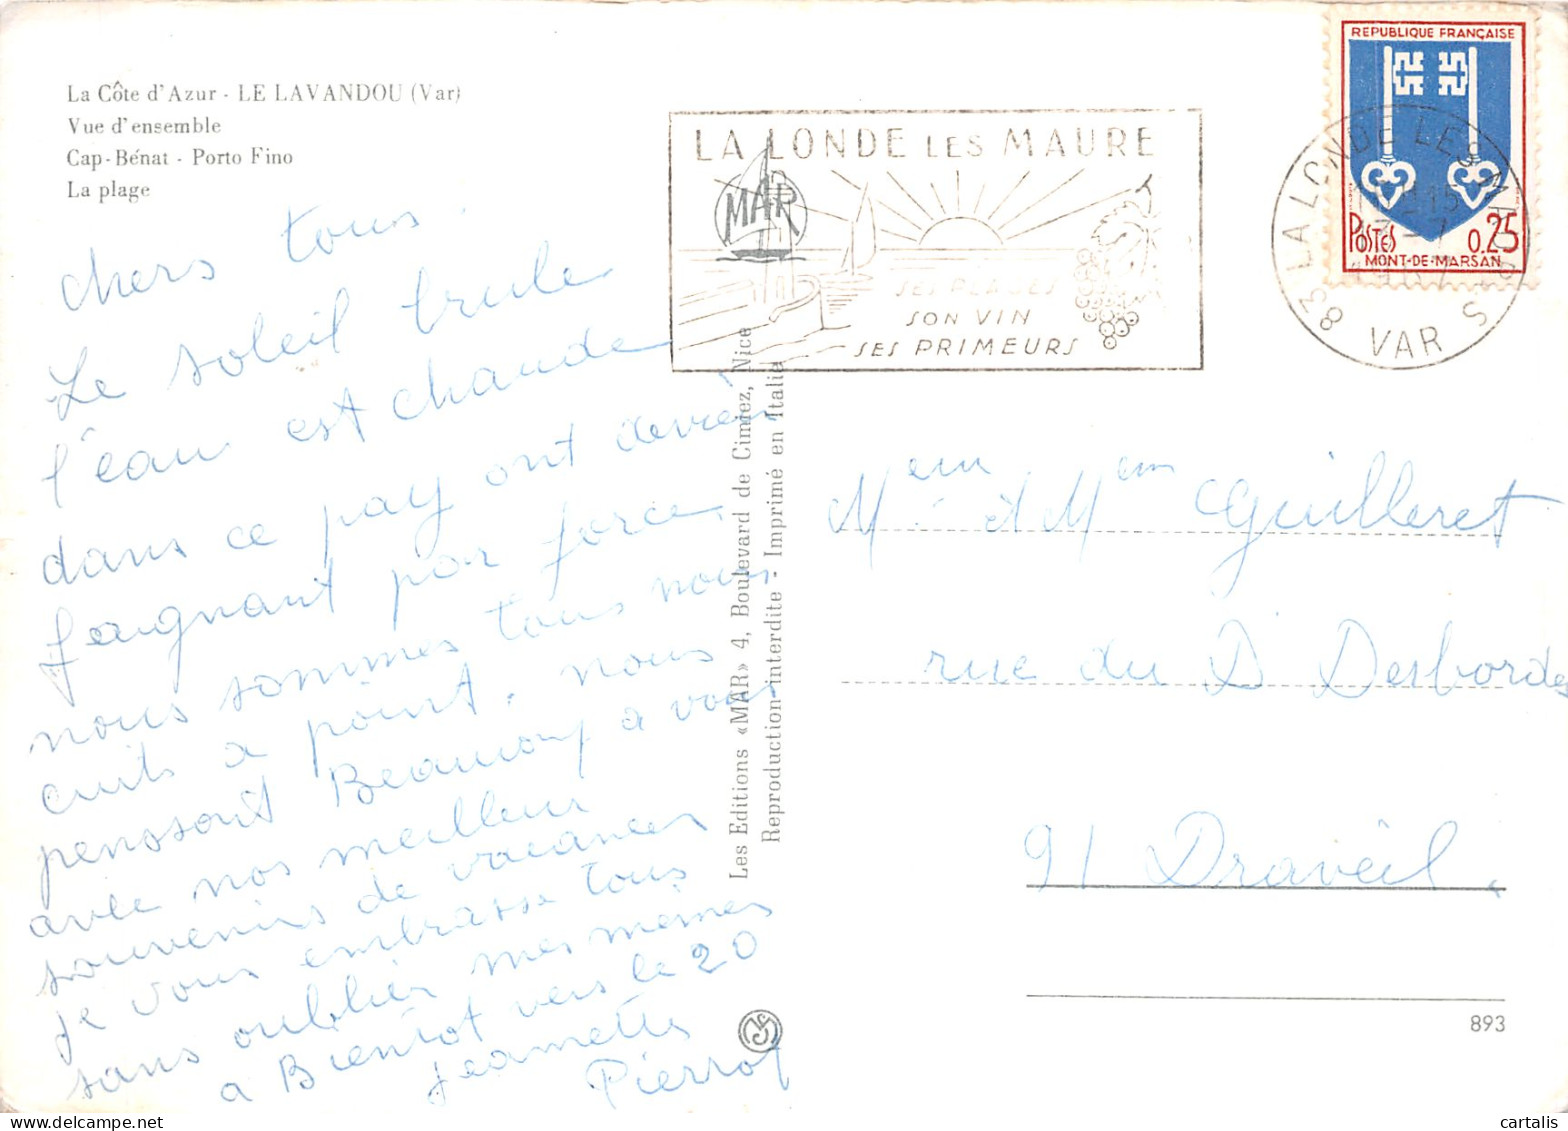 La Côte d'Azur - LE LAVANDOU (Var)
Vue d'ensemble
Cap-Bénat - Porto Fino
La plage
chers tous.
Le soleil brule
l'eau est chaude
dans ce pay ont devien
faignant par force,
nous sommes tous nous
cuits a point. nous
penssont Beaucoup a vous
avec nos meilleur
souvenirs de vacances
je vous embrasse tous
sans oublier mes memes
a Bientot vers le 20
Jeannette
Pierrot
Les Editions «MAR» 4, Boulevard de Cimiez, Nice
Reproduction interdite - Imprimé en Italie
MAR
LA LONDE LES MAURE
SES PLAGES
SON VIN
SES PRIMEURS
83 LA LONDE LES MAURES
VAR
REPUBLIQUE FRANÇAISE
POSTES 0.25
MONT-DE-MARSAN
Guilleret
rue du D Desbordes
91 Draveil
893
cartalis